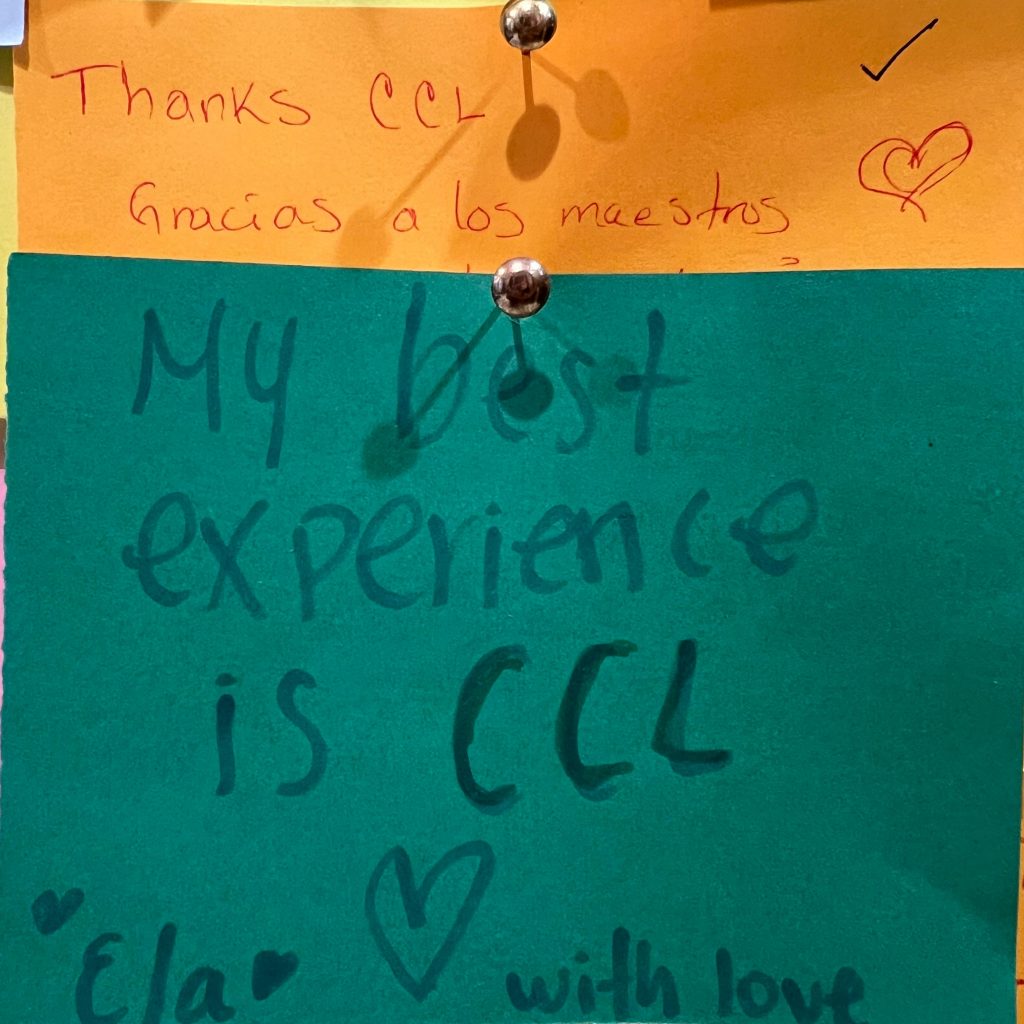 Thanks CCL
Gracias a los maestros
My best
experience
is CCL
Ela with love